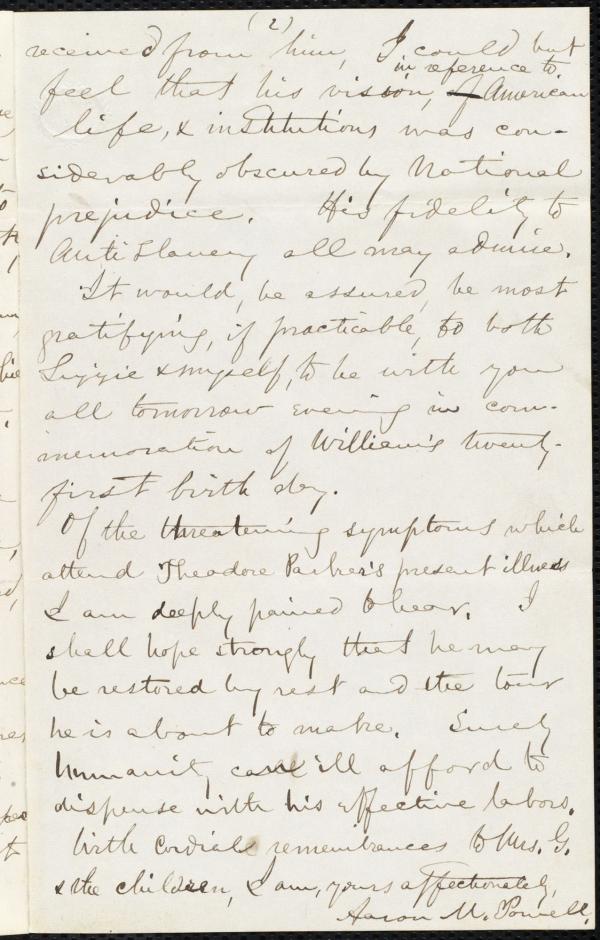 (2)
received from him, I could but
feel that his vision, in reference to American
life, & institutions was con-
siderably obscured by National
prejudice. His fidelity to
Anti Slavery all may admire.
It would, be assured, be most
gratifying, if practicable, to both
Lizzie & myself, to be with you
all tomorrow evening in com-
memoration of William's twenty-
first birth day.
Of the threatening symptoms which
attend Theodore Parker's present illness
I am deeply pained to hear. I
shall hope strongly that he may
be restored by rest and the tour
he is about to make. Surely
humanity can ill afford to
dispense with his effective labors.
With cordial remembrances to Mrs. G.
& the children, I am, yours affectionately,
Aaron M. Powell.